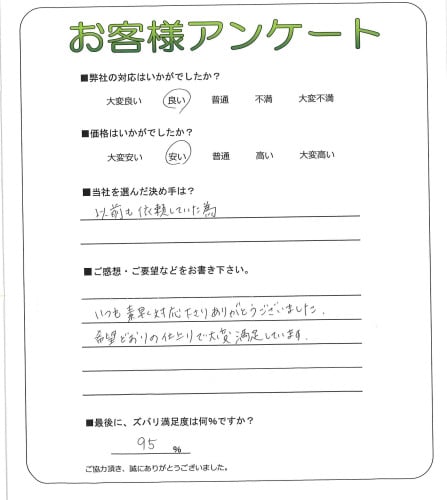 お客様アンケート
■弊社の対応はいかがでしたか？
大変良い 良い 普通 不満 大変不満
■価格はいかがでしたか？
大変安い 安い 普通 高い 大変高い
■当社を選んだ決め手は？
以前も依頼していた為
■ご感想・ご要望などをお書き下さい。
いつも素早く対応下さりありがとうございました。
希望どおりの仕上りで大変満足しています。
■最後に、ズバリ満足度は何％ですか？
95 ％
ご協力頂き、誠にありがとうございました。